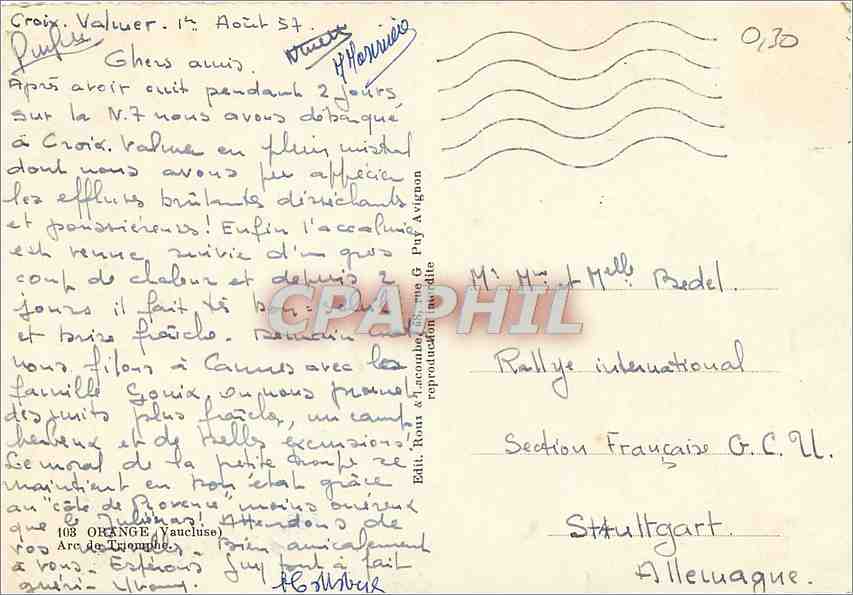 Croix. Valmer. 1er Août 57.
Chers amis.
Après avoir cuit pendant 2 jours
sur la N.7 nous avons débarqué
à Croix. Valmer en plein mistral
dont nous avons pu apprécier
les effluves brûlantes désséchantes
et poussiéreuses! Enfin l'accalmie
est venue suivie d'un gros
coup de chaleur et depuis 2
jours il fait très bon = soleil
et brise fraîche. Demain
nous filons à Cannes avec la
famille Gonix, on nous promet
des nuits plus fraîches, un camp
herbeux et de belles excursions!
Le moral de la petite troupe se
maintient en bon état grâce
au "côte de Provence" moins onéreux
que le Juliénas! Attendons de
vos nouvelles. Bien amicalement
à vous. Espérons Guy tout à fait
guéri.
103 ORANGE (Vaucluse)
Arc de Triomphe.
Edit. Roux & Lacombe, 68, rue G. Puy Avignon
reproduction interdite
CPAPHIL
0,30
Mr Mme et Melle Bedel.
Rallye international
Section Française G.C.U.
Stuttgart.
Allemagne.